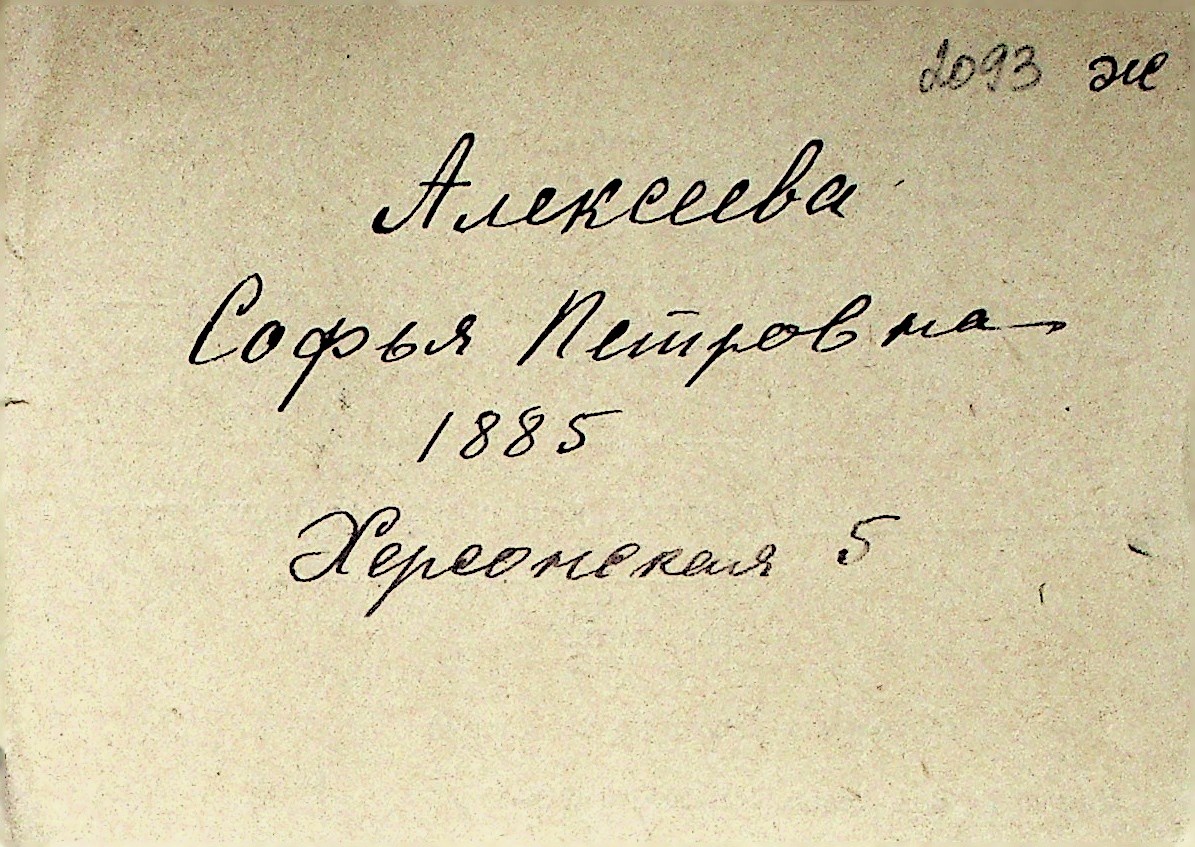 2093 ж
Алексеева
Софья Петровна
1885
Херсонская 5